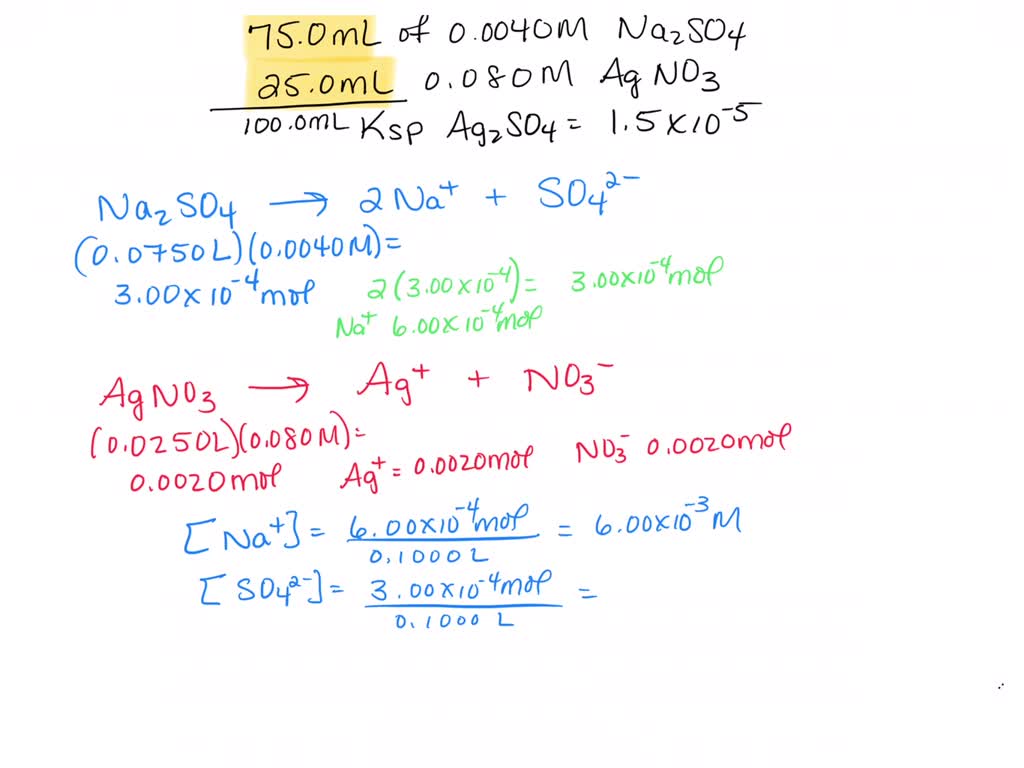 75.0mL of 0.0040M Na₂SO₄
25.0mL 0.080M AgNO₃
100.0mL Ksp Ag₂SO₄ = 1.5×10⁻⁵
Na₂SO₄ → 2Na⁺ + SO₄²⁻
(0.0750L)(0.0040M)=
3.00×10⁻⁴mol 2(3.00×10⁻⁴)= 3.00×10⁻⁴mol
Na⁺ 6.00×10⁻⁴mol
AgNO₃ → Ag⁺ + NO₃⁻
(0.0250L)(0.080M)=
0.0020mol Ag⁺=0.0020mol NO₃⁻ 0.0020mol
[Na⁺]= 6.00×10⁻⁴mol = 6.00×10⁻³M
0.1000L
[SO₄²⁻]= 3.00×10⁻⁴mol =
0.1000 L